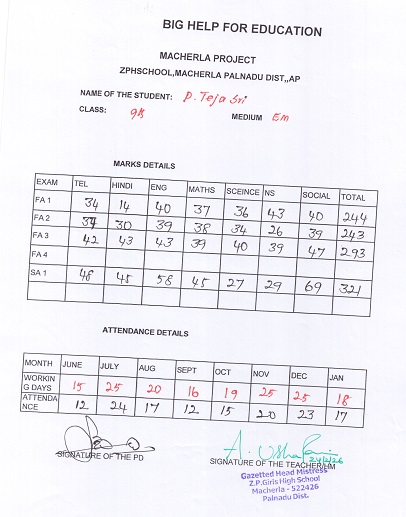 BIG HELP FOR EDUCATION
MACHERLA PROJECT
ZPHSCHOOL,MACHERLA PALNADU DIST,,AP
NAME OF THE STUDENT: P. Teja Sri
CLASS: 9th
MEDIUM Em
MARKS DETAILS
EXAM TEL HINDI ENG MATHS SCEINCE NS SOCIAL TOTAL
FA 1 34 14 40 37 36 43 40 244
FA 2 34 30 39 38 34 26 39 243
FA 3 42 43 43 39 40 39 47 293
FA 4
SA 1 48 45 58 45 27 29 69 321
ATTENDANCE DETAILS
MONTH JUNE JULY AUG SEPT OCT NOV DEC JAN
WORKIN
G DAYS 15 25 20 16 19 25 25 18
ATTENDA
NCE 12 24 17 12 15 20 23 17
SIGNATURE OF THE PD
SIGNATURE OF THE TEACHER/HM
Gazetted Head Mistress
Z.P.Girls High School
Macherla - 522426
Palnadu Dist.